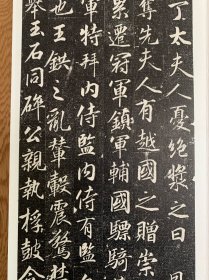 丁太夫人憂絶漿之日
奪先夫人有越國之贈崇
累遷冠軍鎮軍輔國驃騎
軍特拜内侍監内侍有監
也王鉷之亂輦轂震驚
拳玉石同碎公親執桴鼓令